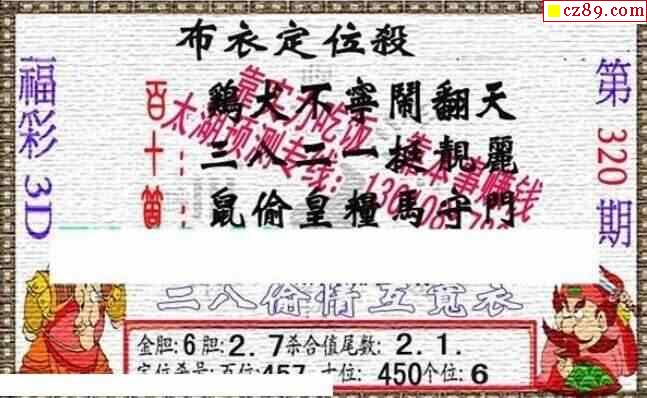 cz89.com
布衣定位殺
福彩3D
第320期
百:鷄犬不寧鬧翻天
十:三八二一挺靚麗
鼠偷皇糧馬守門
靠实力吃饭 靠本事赚钱
太湖预测专线:
二八偷情互寬衣
金胆:6胆:2.7杀合值尾数:2.1.
定位杀号:百位:457 十位:450个位:6